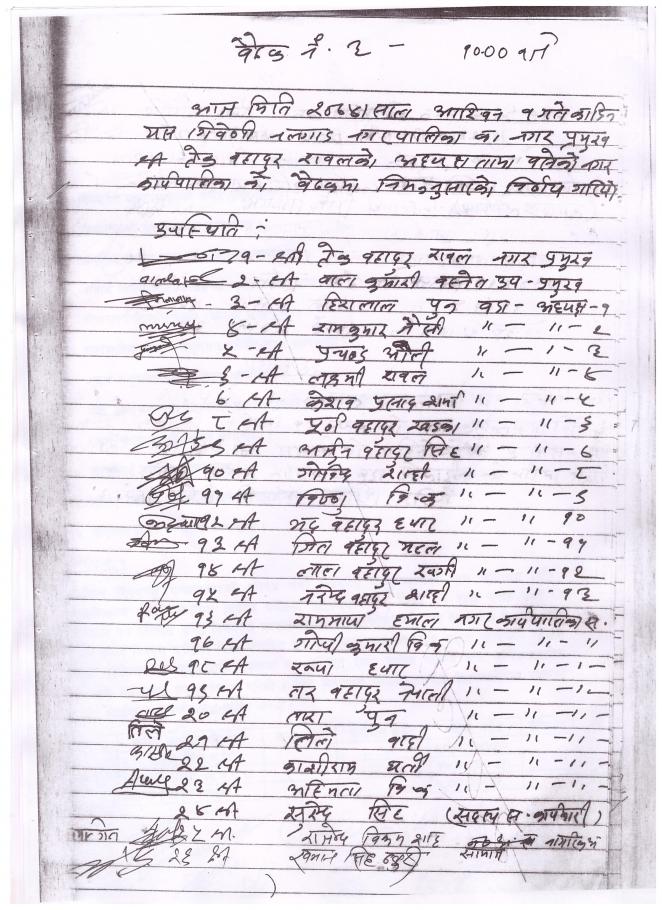 बैठक नं. ३ - १०.०० बजे
आज मिति २०७४ साल आश्विन १ गतेका दिन
यस त्रिवेणी नलगाड नगरपालिका का नगर प्रमुख
श्री टेक बहादुर रावलको अध्यक्षतामा बसेको नगर
कार्यपालिका को बैठकमा निम्नानुसारको निर्णय गरियो.
उपस्थिति :
१- श्री टेक बहादुर रावल नगर प्रमुख
२- श्री वाला कुमारी वस्नेत उप-प्रमुख
३- श्री हिरालाल पुन वडा - अध्यक्ष - १
४- श्री रामकुमार " - " - २
५ - श्री प्रचण्ड ओली " - " - ३
६ - श्री लक्ष्मी रावल " - " - ४
७ श्री केशव प्रसाद शर्मा " - " - ५
८ श्री पूर्ण बहादुर खड्का " - " - ६
९ श्री बहादुर सिंह " - " - ७
१० श्री गोविन्द शाही " - " - ८
११ श्री विष्णु वि.क " - " - ९
१२ श्री भद्र बहादुर " - " १०
१३ श्री जित बहादुर " - " - ११
१४ श्री लाल बहादुर " - " - १२
१५ श्री नरेन्द्र बहादुर शाही " - " - १३
१६ श्री राममाया हमाल नगर कार्यपालिका स.
१७ श्री गोपी कुमारी वि क " - " - "
१८ श्री रुपा " - " - "
१९ श्री नर बहादुर नेपाली " - " - "
२० श्री तारा पुन " - " - "
तिले २१ श्री तिले " - " - "
२२ श्री काशीराम घर्ती " - " - "
२३ श्री अस्मिता वि क " - " - "
२४ श्री सुरेन्द्र सिंह (सदस्य स. कार्यकारी)
२५ श्री. राजेन्द्र विक्रम शाह
२६ श्री सिंह